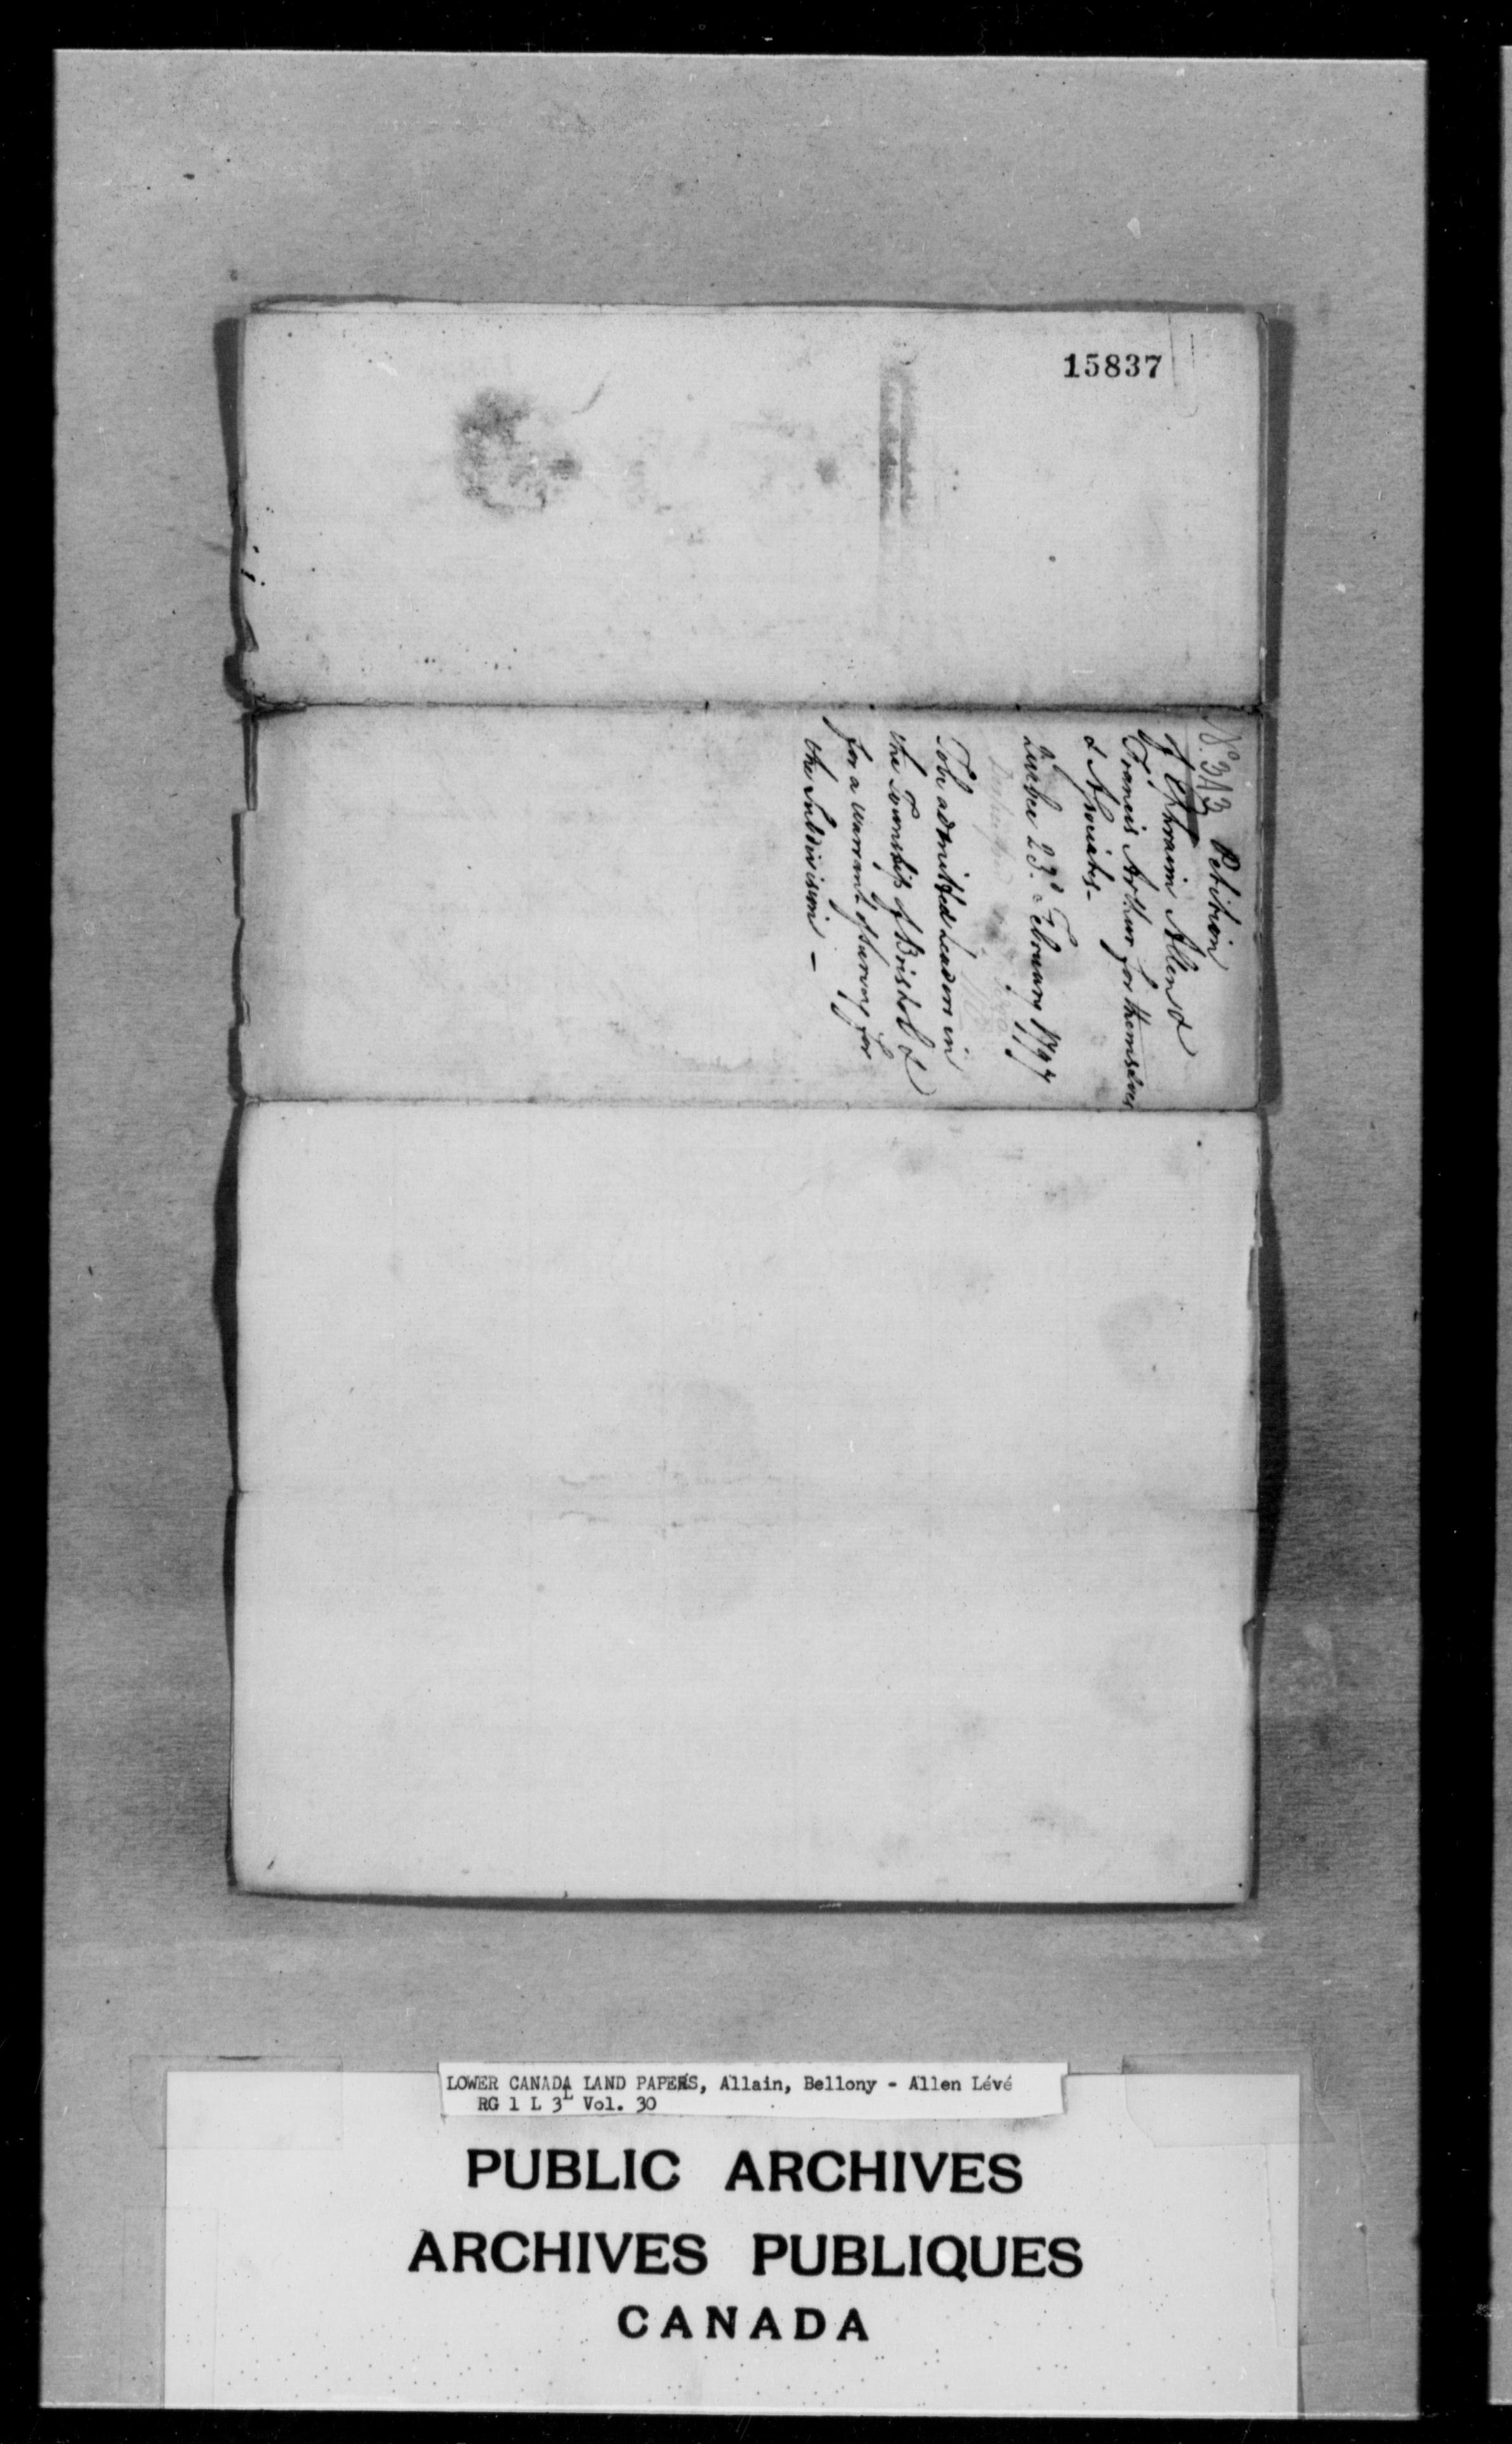 15837
No. 313 Petition
of Ephraim Allen &
Francis Arthur for themselves
& Associates -
Quebec 23d. February 1797
To be admitted Leaders in
the Township of Bristol &
for a warrant of survey for
the Subdivision -
LOWER CANADA LAND PAPERS, Allain, Bellony - Allen Lévé
RG 1 L 3L Vol. 30
PUBLIC ARCHIVES
ARCHIVES PUBLIQUES
CANADA